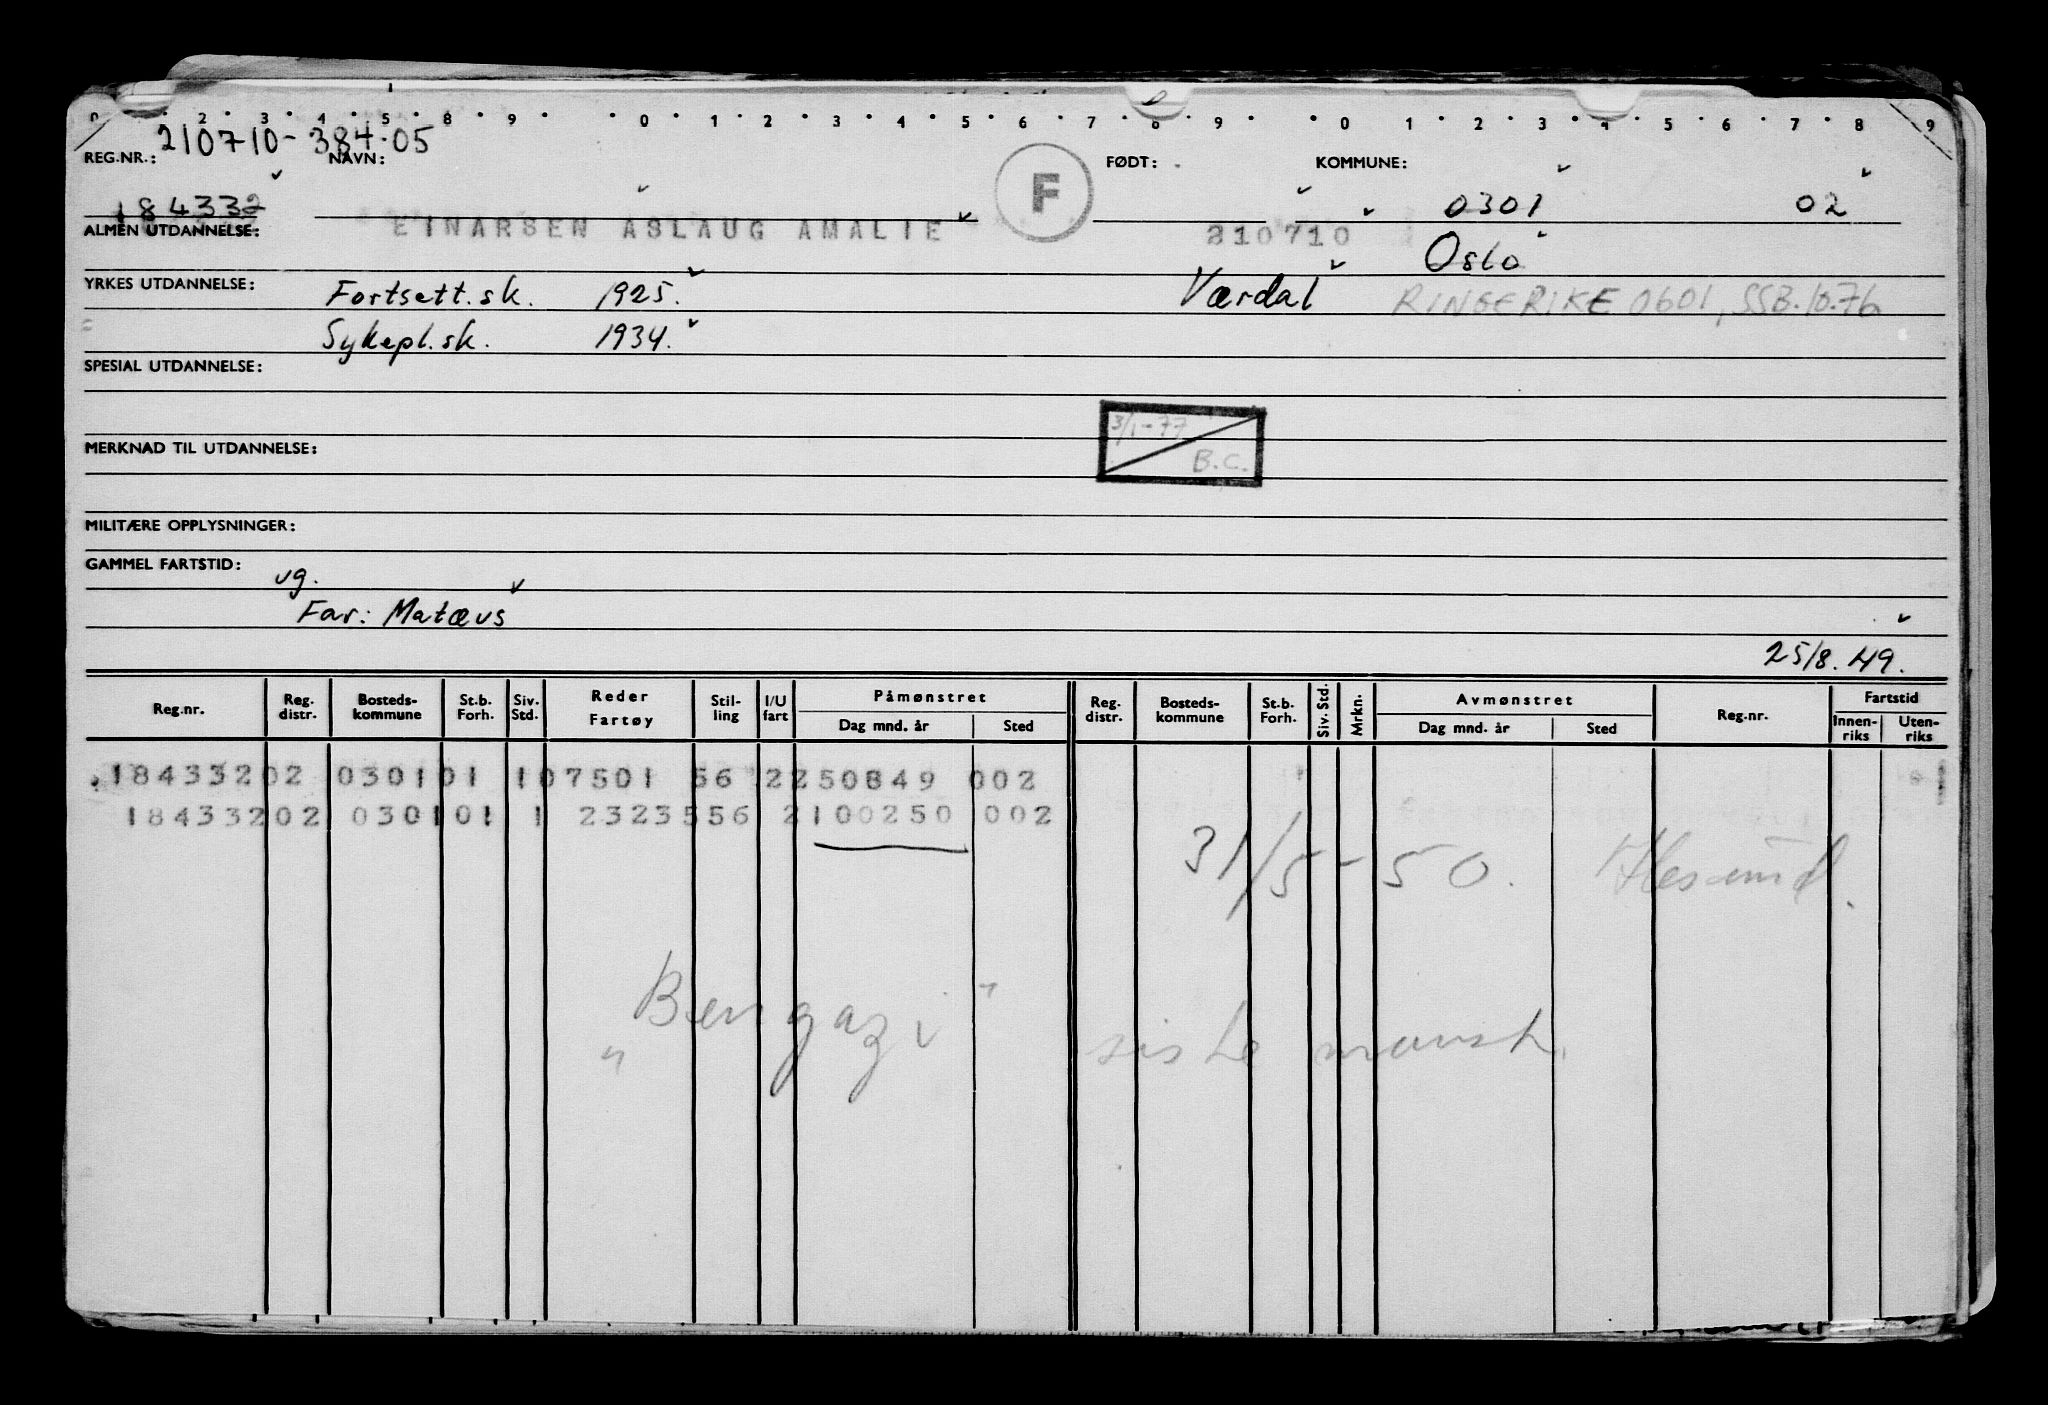 0 · 2 · 3 · 4 · 5 · 8 · 9 · · 0 · 1 · 2 · 3 · 4 · 5 · 6 · 7 · 8 · 9 · · 0 · 1 · 2 · 3 · 4 · 5 · 6 · 7 · 8 · 9
210710-384.05
REG.NR.: NAVN: F FØDT: KOMMUNE:
184332 0301 02
ALMEN UTDANNELSE: EINARSEN ASLAUG AMALIE 210710 Oslo
YRKES UTDANNELSE: Fortsett.sk. 1925. Værdal RINGERIKE 0601, SSB.10.76
Sykepl.sk. 1934.
SPESIAL UTDANNELSE:
3/1-77
MERKNAD TIL UTDANNELSE: B.C.
MILITÆRE OPPLYSNINGER:
GAMMEL FARTSTID: vg.
Far: Matæus
25/8. 49.
Reg.nr. Reg. distr. Bosteds- kommune St.b. Forh. Siv. Std. Reder Fartøy Stil- ling I/U fart Påmønstret Dag mnd. år Sted Reg. distr. Bosteds- kommune St.b. Forh. Siv. Std. Mrkn. Avmønstret Dag mnd. år Sted Reg.nr. Fartstid Innen- riks Uten- riks
18433202 030101 107501 56 2250849 002
18433202 030101 1 2323556 2100250 002
31/5-50.
"Bengazi" siste mønst.